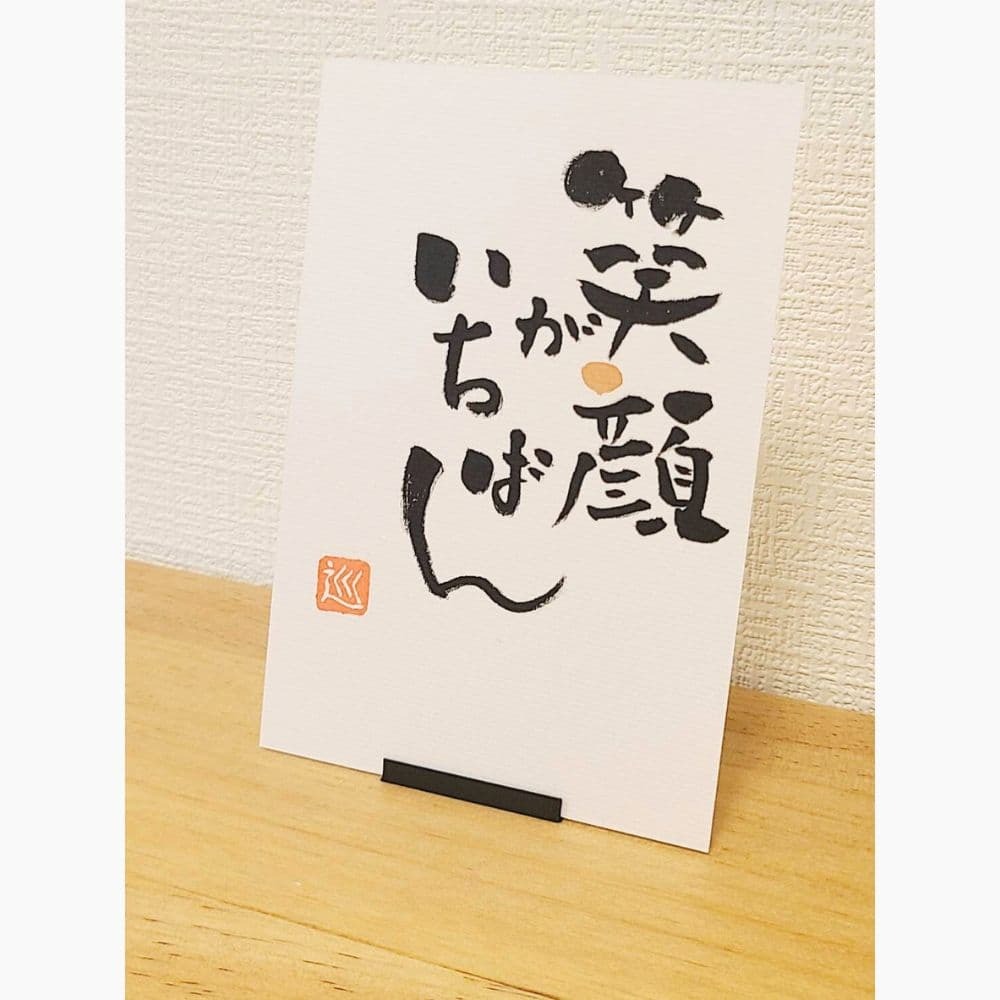 笑顔
が
いちばん
巡